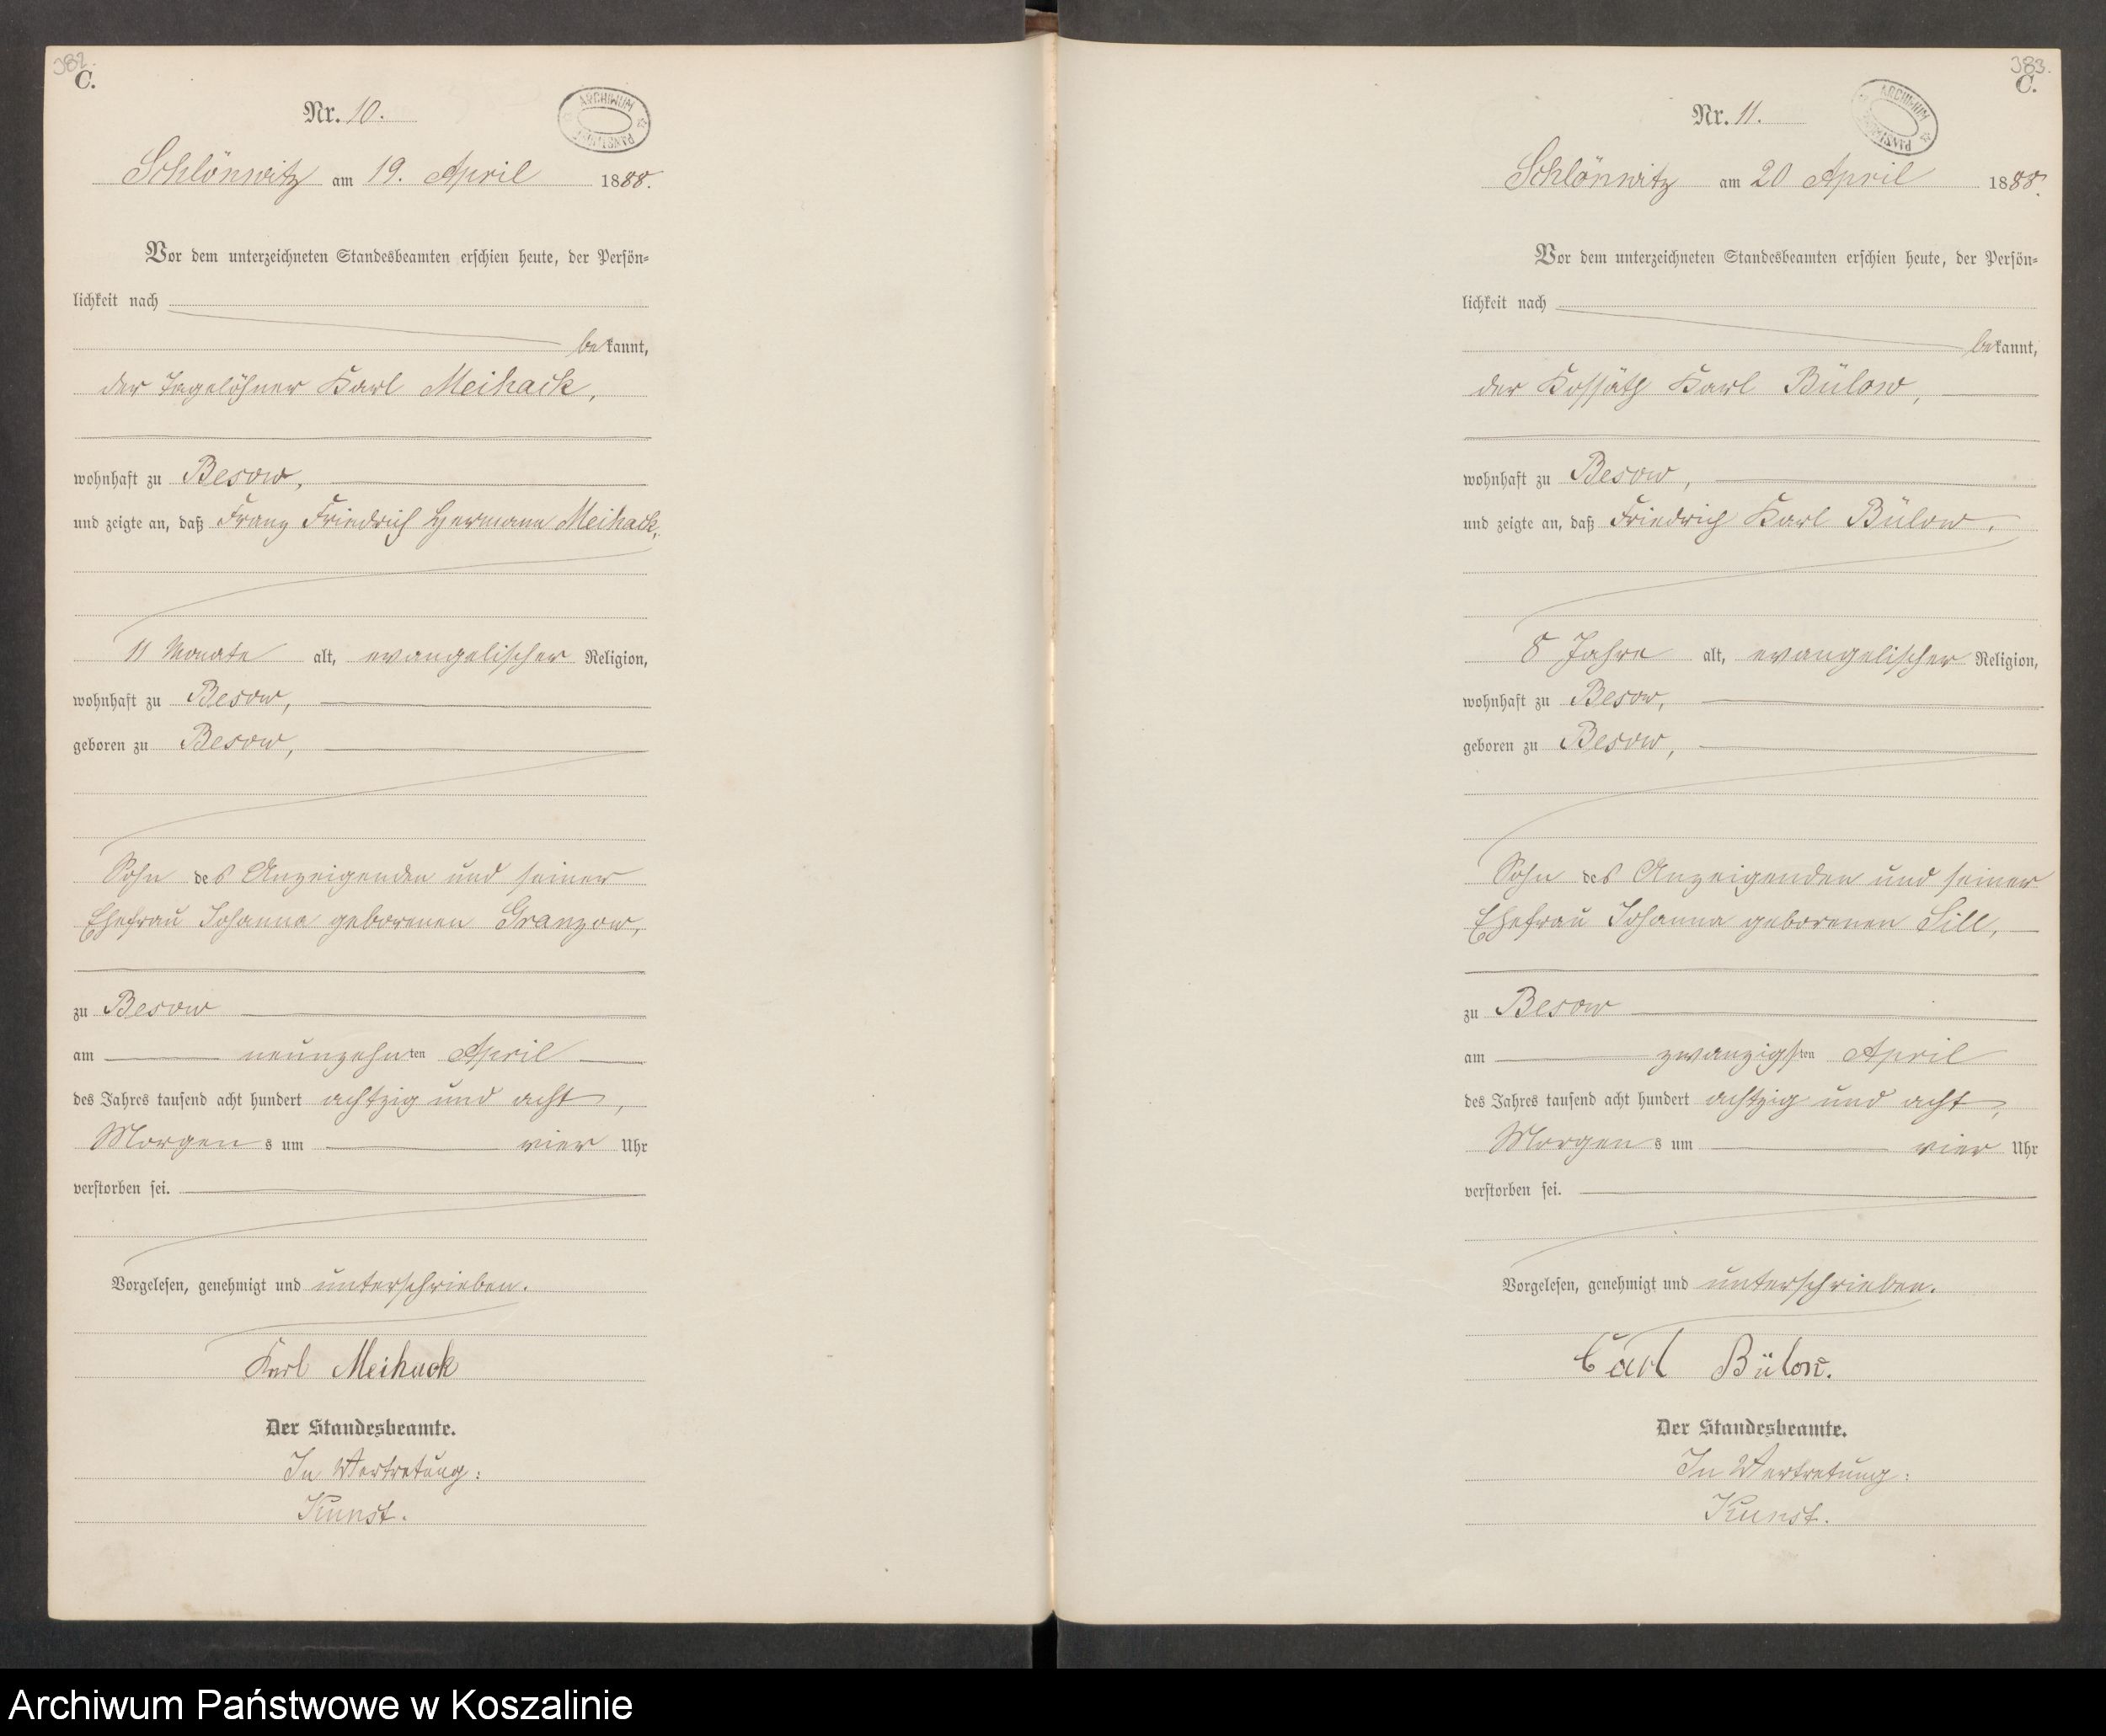 382.
C.
Nr. 10.
ARCHIWUM
PAŃSTWOWE
Schlönwitz am 19. April 1888.
Vor dem unterzeichneten Standesbeamten erschien heute, der Persön-
lichkeit nach
bekannt,
der Tagelöhner Karl Meihack,
wohnhaft zu Besow,
und zeigte an, daß Franz Friedrich Hermann Meihack,
11 Monate alt, evangelischer Religion,
wohnhaft zu Besow,
geboren zu Besow,
Sohn des Anzeigenden und seiner
Ehefrau Johanna geborenen Granzow,
zu Besow
am neunzehnten April
des Jahres tausend acht hundert achtzig und acht,
Morgens um vier Uhr
verstorben sei.
Vorgelesen, genehmigt und unterschrieben.
Karl Meihack
Der Standesbeamte.
In Vertretung:
Kunst.
383.
C.
Nr. 11.
ARCHIWUM
PAŃSTWOWE
Schlönwitz am 20 April 1888.
Vor dem unterzeichneten Standesbeamten erschien heute, der Persön-
lichkeit nach
bekannt,
der Kossäth Karl Bülow,
wohnhaft zu Besow,
und zeigte an, daß Friedrich Karl Bülow,
8 Jahre alt, evangelischer Religion,
wohnhaft zu Besow,
geboren zu Besow,
Sohn des Anzeigenden und seiner
Ehefrau Johanna geborenen Sill,
zu Besow
am zwanzigsten April
des Jahres tausend acht hundert achtzig und acht,
Morgens um vier Uhr
verstorben sei.
Vorgelesen, genehmigt und unterschrieben.
Carl Bülow.
Der Standesbeamte.
In Vertretung:
Kunst.
Archiwum Państwowe w Koszalinie